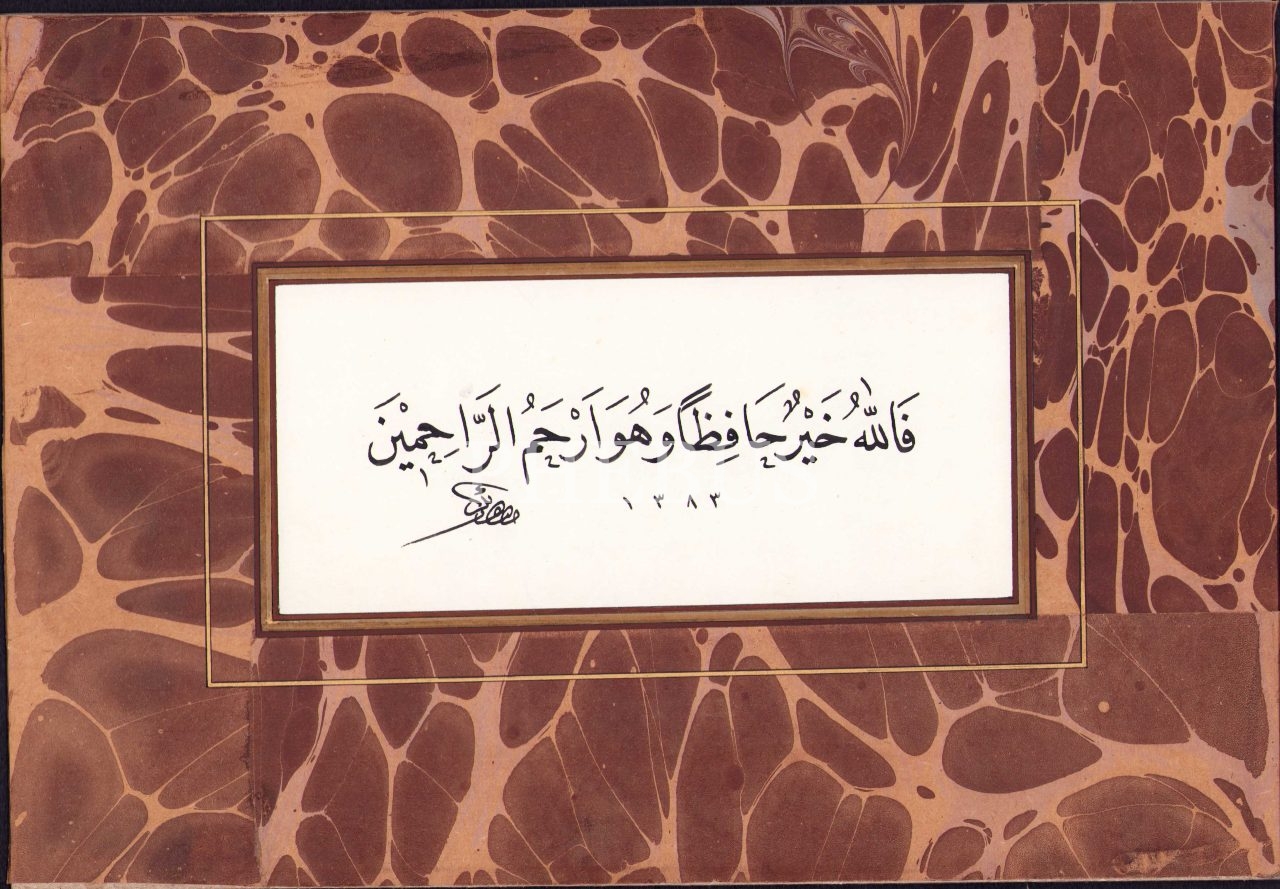 فَاللّٰهُ خَيْرٌ حَافِظًا وَهُوَ اَرْحَمُ الرَّاحِمِيْنَ
١٣٨٣